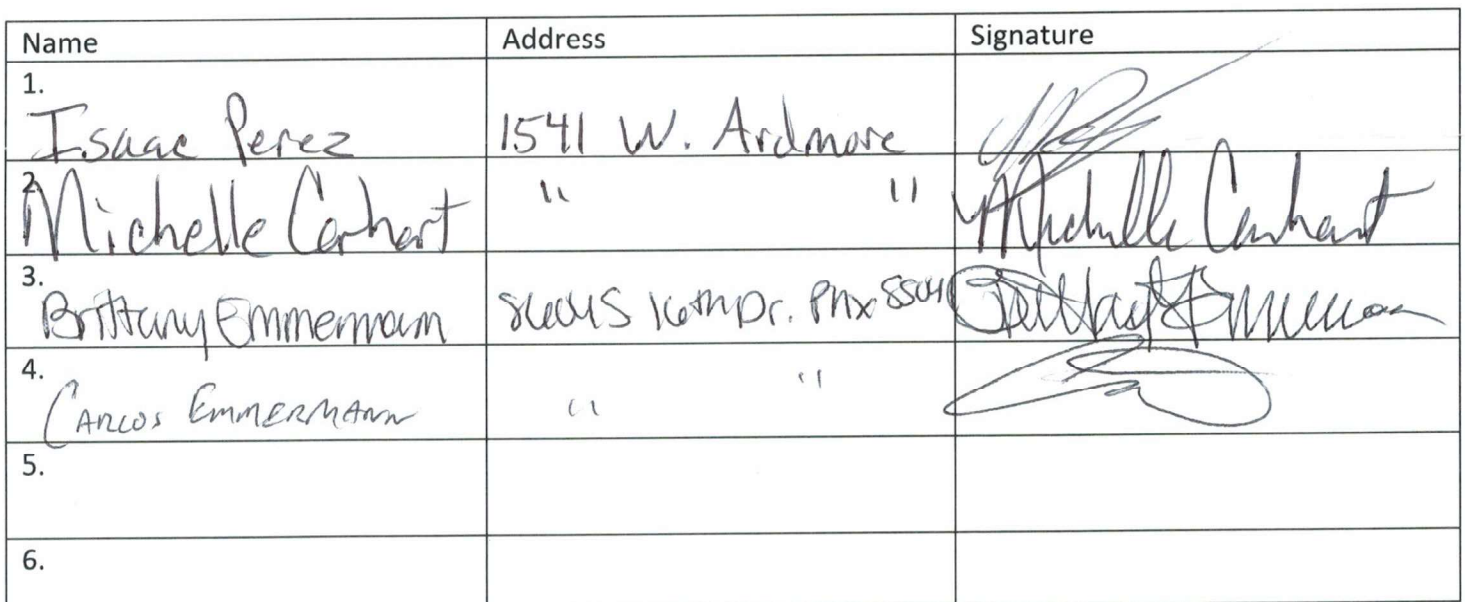 Name Address Signature
1.
Isaac Perez 1541 W. Ardmore
2.
Michelle Carhart " " Michelle Carhart
3.
Brittany Emmermann 16th Dr. Phx
4.
Carlos Emmermann " "
5.
6.